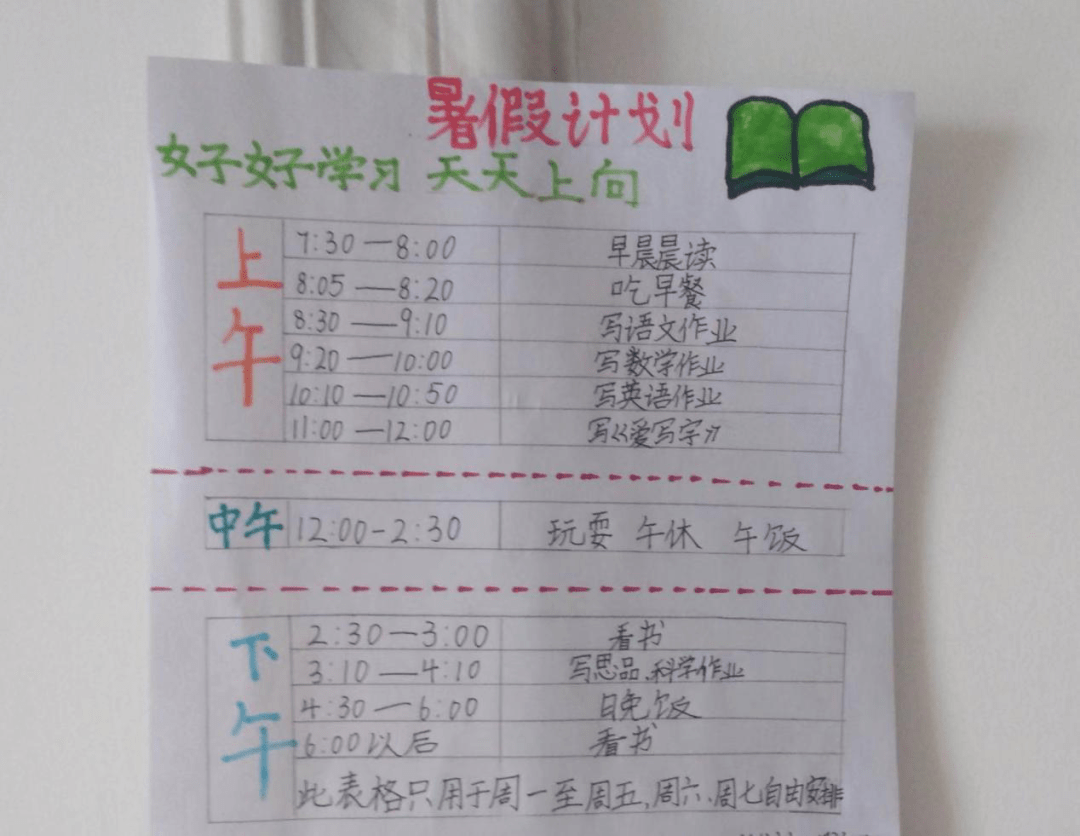 暑假计划
好好学习 天天上向
上午
7:30—8:00 早晨晨读
8:05—8:20 吃早餐
8:30—9:10 写语文作业
9:20—10:00 写数学作业
10:10—10:50 写英语作业
11:00—12:00 写《爱写字》
中午 12:00-2:30 玩耍 午休 午饭
下午
2:30—3:00 看书
3:10—4:10 写思品、科学作业
4:30—6:00 晚饭
6:00以后 看书
此表格只用于周一至周五,周六、周七自由安排